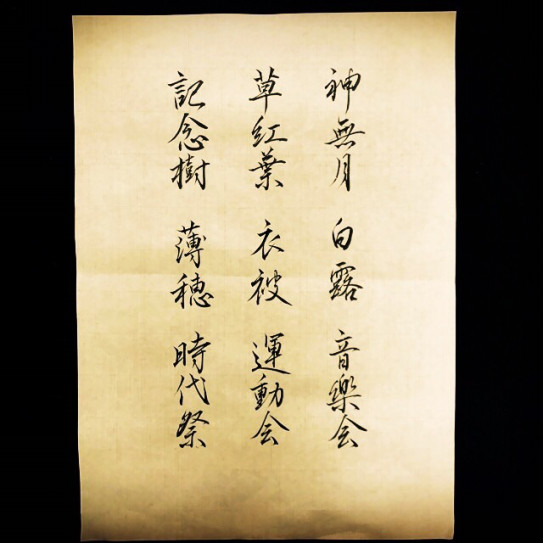 神無月 白露 音樂会
草紅葉 衣被 運動会
記念樹 薄穂 時代祭